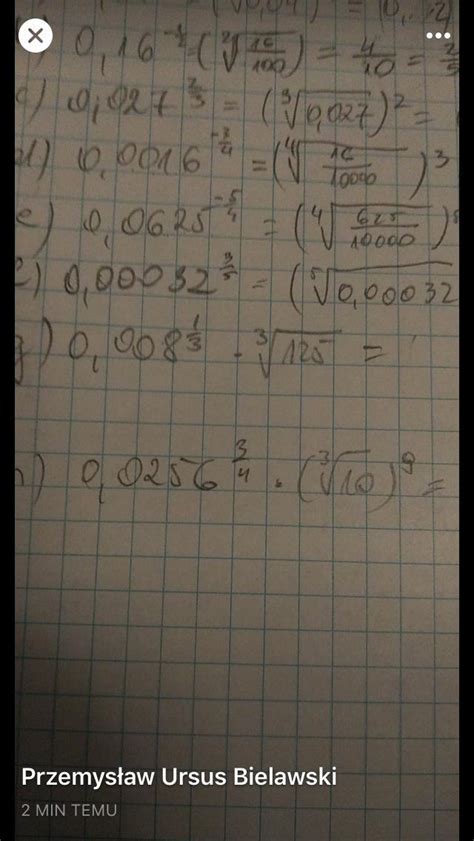 (√0,04) = 0,2
) 0,16^{-1/2} = (²√(16/100)) = 4/10 = 2/5
c) 0,027^{2/3} = (³√0,027)² =
d) 0,0016^{-3/4} = (⁴√(16/10000))³
e) 0,0625^{-5/4} = (⁴√(625/10000))⁵
f) 0,00032^{3/5} = (⁵√0,00032
g) 0,008^{1/3} - ³√125 =
h) 0,0256^{3/4} · (³√10)⁹ =
Przemysław Ursus Bielawski
2 MIN TEMU